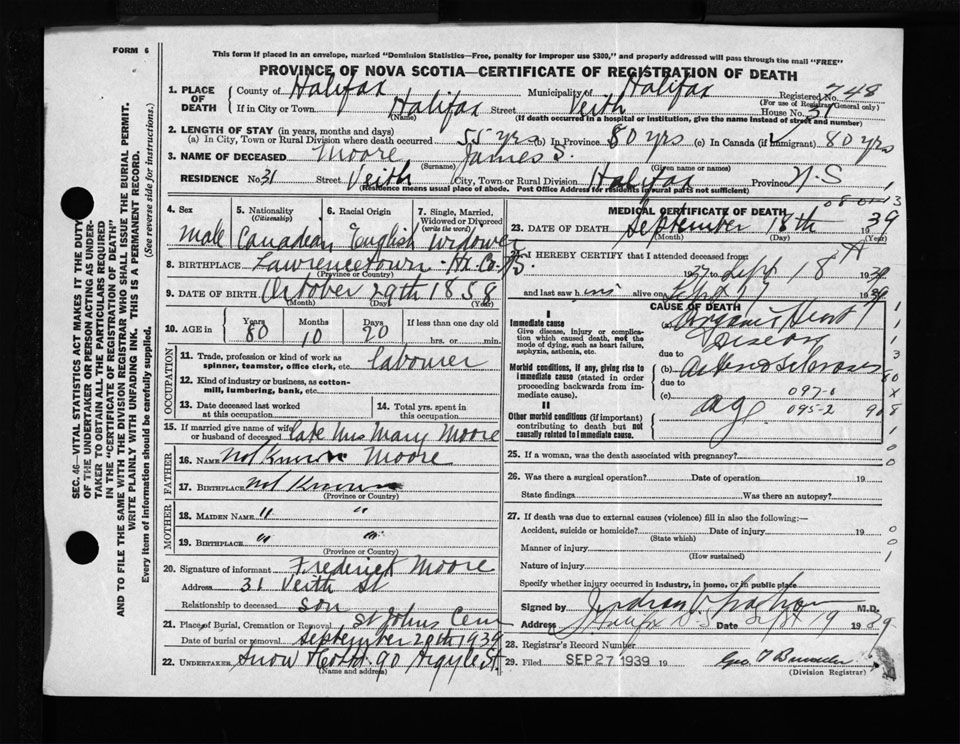 FORM 6
This form if placed in an envelope, marked "Dominion Statistics—Free, penalty for improper use $300," and properly addressed will pass through the mail "FREE"
PROVINCE OF NOVA SCOTIA—CERTIFICATE OF REGISTRATION OF DEATH
SEC. 46—VITAL STATISTICS ACT MAKES IT THE DUTY
OF THE UNDERTAKER OR PERSON ACTING AS UNDER-
TAKER TO OBTAIN ALL THE PARTICULARS REQUIRED
IN THE "CERTIFICATE OF REGISTRATION OF DEATH"
AND TO FILE THE SAME WITH THE DIVISION REGISTRAR WHO SHALL ISSUE THE BURIAL PERMIT.
WRITE PLAINLY WITH UNFADING INK. THIS IS A PERMANENT RECORD.
Every item of information should be carefully supplied. (See reverse side for instructions.)
1. PLACE OF DEATH County of Halifax Municipality of Halifax Registered No. 748
(For use of Registrar General only)
If in City or Town Halifax Street Veith House No. 31
(Name) (If death occurred in a hospital or institution, give the name instead of street and number)
2. LENGTH OF STAY (in years, months and days)
(a) In City, Town or Rural Division where death occurred 55 yrs (b) In Province 80 yrs (c) In Canada (if immigrant) 80 yrs
3. NAME OF DECEASED Moore, James S.
(Surname) (Given name or names)
RESIDENCE No. 31 Street Veith City, Town or Rural Division Halifax Province N-S
(Residence means usual place of abode. Post Office Address for residents in rural parts not sufficient)
4. Sex 5. Nationality (Citizenship) 6. Racial Origin 7. Single, Married, Widowed or Divorced (write the word)
Male Canadian English Widower
8. BIRTHPLACE Lawrencetown - Hx. Co. N.S.
(Province or Country)
9. DATE OF BIRTH October 29th 1858
(Month) (Day) (Year)
10. AGE in Years Months Days If less than one day old
80 10 20 hrs. or min.
OCCUPATION
11. Trade, profession or kind of work as spinner, teamster, office clerk, etc. labourer
12. Kind of industry or business, as cotton-mill, lumbering, bank, etc.
13. Date deceased last worked at this occupation 14. Total yrs. spent in this occupation
15. If married give name of wife or husband of deceased late Mrs Mary Moore
FATHER
16. NAME not known Moore
17. BIRTHPLACE not known
(Province or Country)
MOTHER
18. MAIDEN NAME " "
19. BIRTHPLACE " "
(Province or Country)
20. Signature of informant Frederick Moore
Address 31 Veith St
Relationship to deceased son
21. Place of Burial, Cremation or Removal St Johns Cem
Date of burial or removal September 20th 1939
22. UNDERTAKER Snow & Co Ltd. 90 Argyle St.
(Name and address)
MEDICAL CERTIFICATE OF DEATH
23. DATE OF DEATH September 18th 1939
(Month) (Day) (Year)
24. I HEREBY CERTIFY that I attended deceased from:
1937 Sept 18th 1939
and last saw him alive on Sept 17 1939
CAUSE OF DEATH
I
Immediate cause (a) Organic Heart Disease
Give disease, injury or complication which caused death, not the mode of dying, such as heart failure, asphyxia, asthenia, etc.
due to
Morbid conditions, if any, giving rise to immediate cause (stated in order proceeding backwards from immediate cause). (b) Arterio Sclerosis
due to
(c) 097-0
II
Other morbid conditions (if important) contributing to death but not causally related to immediate cause. age 095-2
25. If a woman, was the death associated with pregnancy?
26. Was there a surgical operation? Date of operation 19
State findings Was there an autopsy?
27. If death was due to external causes (violence) fill in also the following:—
Accident, suicide or homicide? Date of injury 19
(State which)
Manner of injury
(How sustained)
Nature of injury
Specify whether injury occurred in industry, in home, or in public place
Signed by M.D.
Address Halifax N-S Date Sept 19 1939
28. Registrar's Record Number
29. Filed SEP 27 1939 19
(Division Registrar)